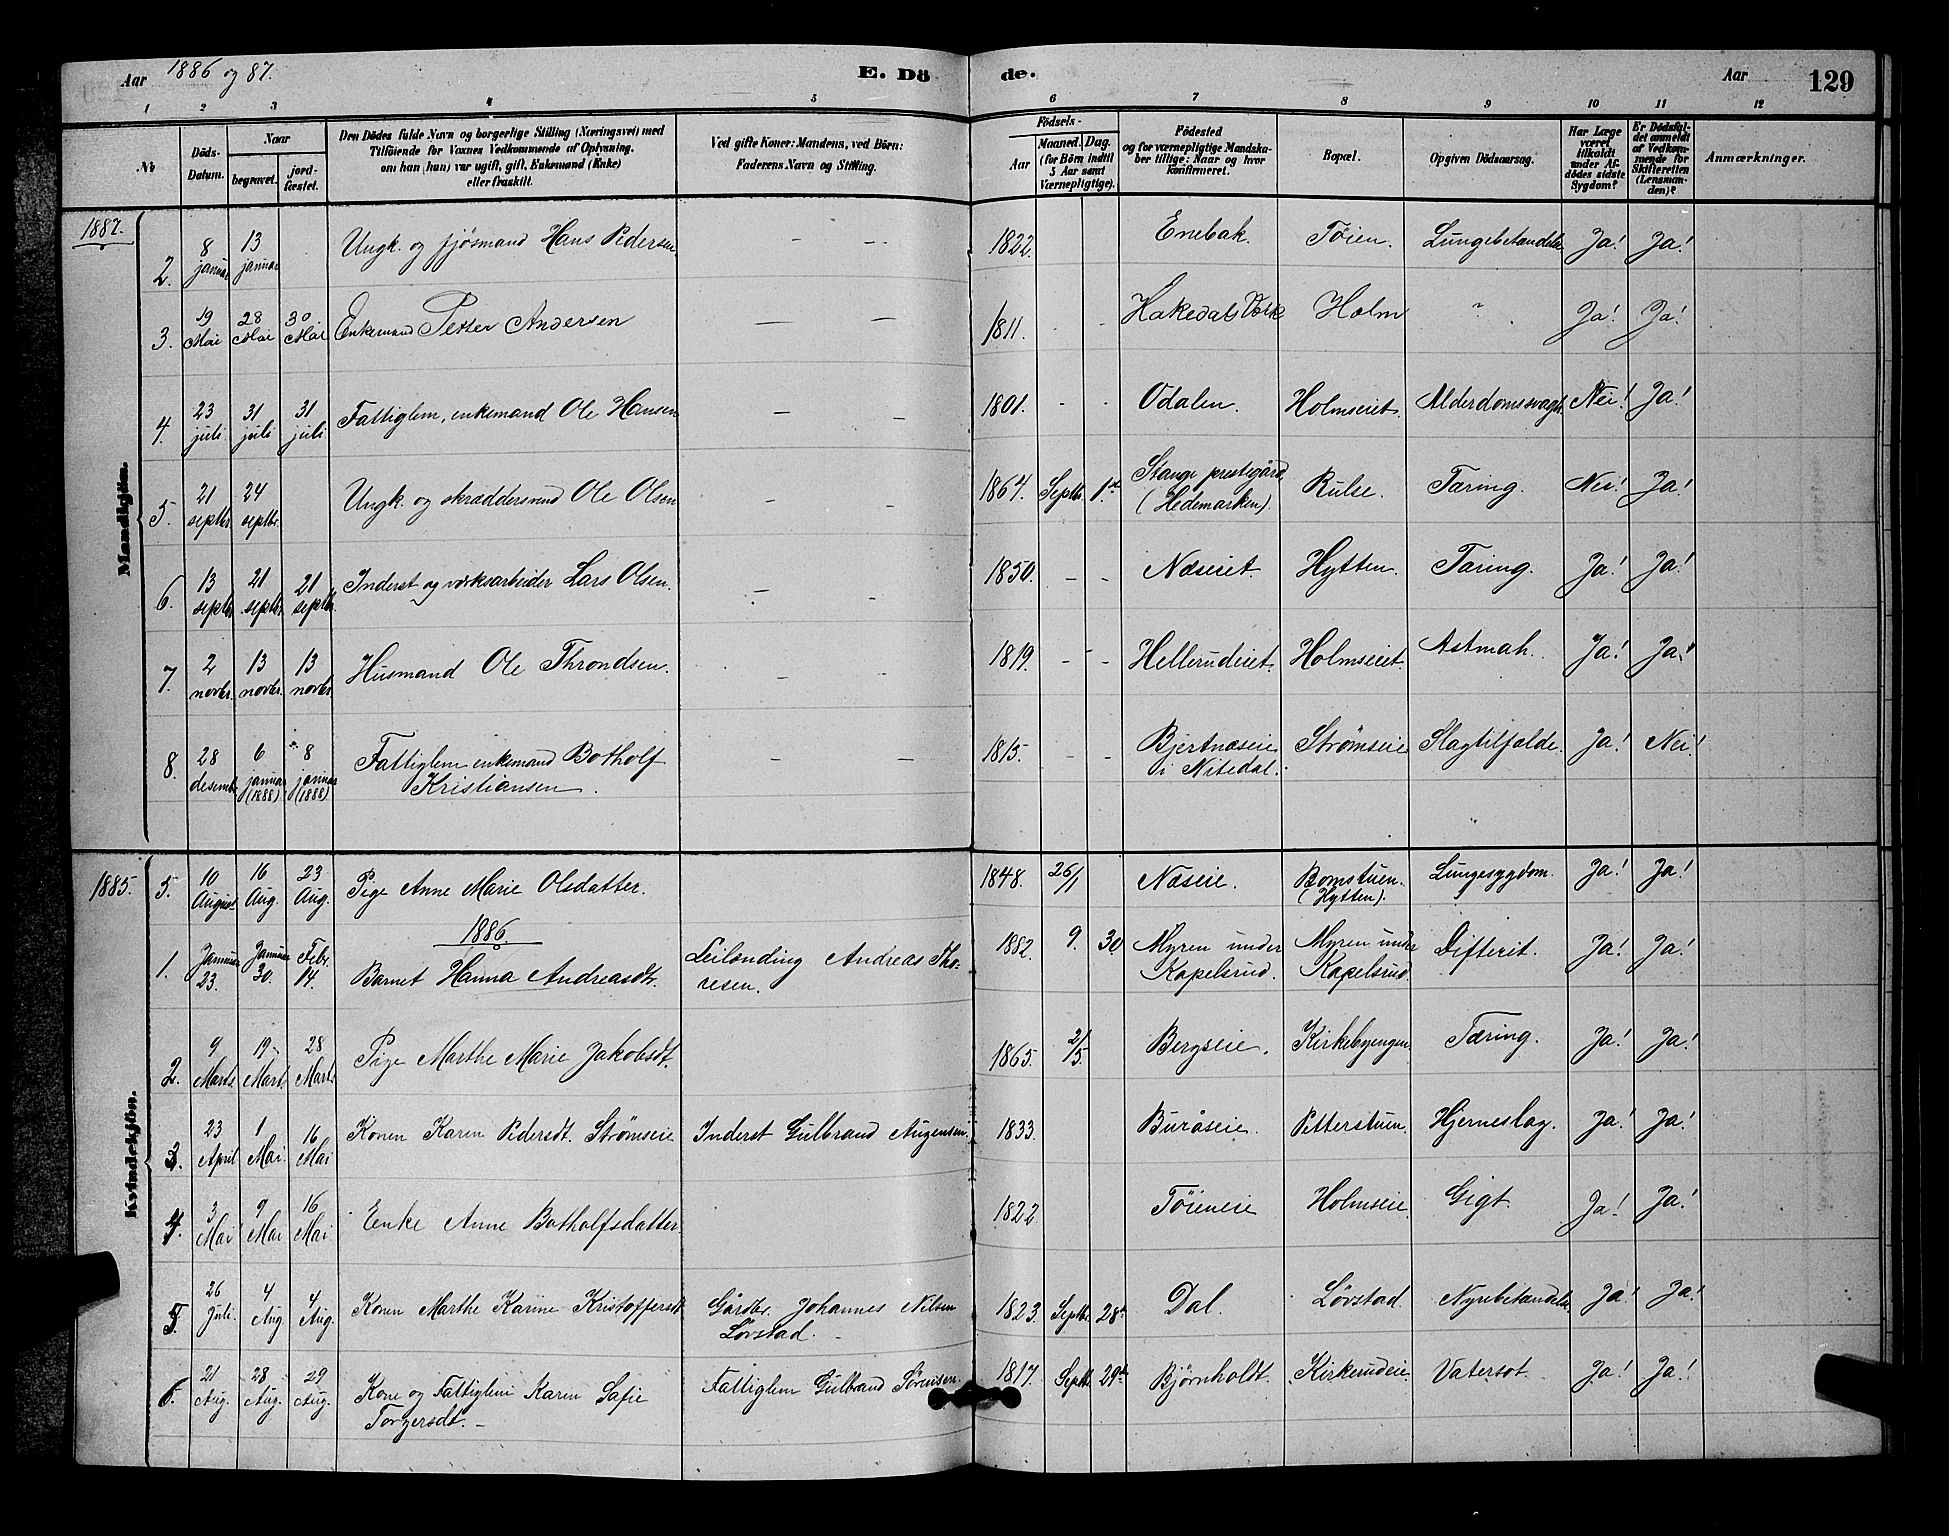 Aar 1886 og 87. E. Dö de. Aar 129
1 2 3 4 5 6 7 8 9 10 11 12
No
Döds-Datum.
Naar
begravet. jordfæstet.
Den Dödes fulde Navn og borgerlige Stilling (Næringsvei) med
Tilföiende for Voxnes Vedkommende af Oplysning,
om han (hun) var ugift, gift, Enkemand (Enke)
eller fraskilt.
Ved gifte Koner: Mandens, ved Börn:
Faderens Navn og Stilling.
Födsels-
Aar Maaned. Dag.
(for Börn indtil
5 Aar samt
Værnepligtige).
Födested
og for værnepligtige Mandskaber tillige: Naar og hvor
konfirmeret.
Bopæl.
Opgiven Dödsaarsag.
Har Læge
været
tilkaldt
under Afdödes sidste
Sygdom?
Er Dödsfaldet anmeldt
af Vedkommende for
Skifteretten
(Lensmanden)?
Anmærkninger.
Mandkjön.
1887.
2. 8 januar 13 januar Ungk. og fjøsmand Hans Pedersen. — — 1822. Enebak. Töien. Lungebetændelse Ja! Ja!
3. 19 Mai 28 Mai 30 Mai Enkemand Petter Andersen — — 1811. - - Hakedals Værk Holm " Ja! Ja!
4. 23 juli. 31 juli 31 juli Fattiglem, enkemand Ole Hansen — — 1801. - - Odalen. Holmseiet. Alderdomssvagh. Nei! Ja!
5. 21 septbr. 24 septbr. Ungk. og skræddersvend Ole Olsen — — 1864. Septbr. 1st Stange prestegård (Hedemarken). Rulse. Tæring. Nei! Ja!
6. 13 septbr. 21 septbr. 21 septbr. Inderst og værksarbeider Lars Olsen. — — 1850. - - Næseiet. Hytten. Tæring. Ja! Ja!
7. 2 novbr. 13 novbr. 13 novbr. Husmand Ole Throndsen. — — 1819. - - Hellerudeiet. Holmseiet. Astmah. Ja! Ja!
8. 28 desembr. 6 januar (1888) 8 januar (1888) Fattiglem enkemand Botholf
Kristiansen. — — 1815. - - Bjertnæseie i Nitedal. Strømseie Slagtilfælde. Ja! Nei!
Kvindekjön.
1885. 5. 10 August 16 Aug. 23 Aug. Pige Anne Marie Olsdatter. 1848. 26/1 Næseie. Bomstuen. (Hytten). Lungesygdom. Ja! Ja!
1886.
1. Januar 23. Januar 30. Febr. 14. Barnet Hanna Andreasdt. Leilending Andreas Thoresen. 1882. 9. 30 Myren under Kapelsrud. Myren under Kapelsrud. Difterit. Ja! Ja!
2. 9 Marts 19 Mart. 28 Marts Pige Marthe Marie Jakobsdt. 1865. 2/5. Bergseie. Kirkebyengen. Tæring. Ja! Ja!
3. 23 April 1 Mai. 16 Mai Konen Karen Pedersdt. Strømseie Inderst Gulbrand Augensen. 1833. Buråseie. Petterstuen. Hjerneslag. Ja! Ja!
4. 3 Mai 9 Mai 16 Mai Enke Anne Botholfsdatter. 1822 Töieneie Holmseie. Gigt. Ja! Ja!
5. 26 Juli. 4 Aug 4 Aug. Konen Marthe Karine Kristoffersdt. Gårdbr. Johannes Nilsen
Lövstad. 1823. Septbr. 28de Dal. Lövstad. Nyrebetændelse. Ja! Ja!
6. 21 Aug. 28 Aug. 29 Aug. Kone og Fattiglem Karen Sofie
Torgersdt. Fattiglem Gulbrand Sørensen. 1817. Septbr. 29de Bjørnholdt. Kirkerudeie. Vatersot. Ja! Ja!